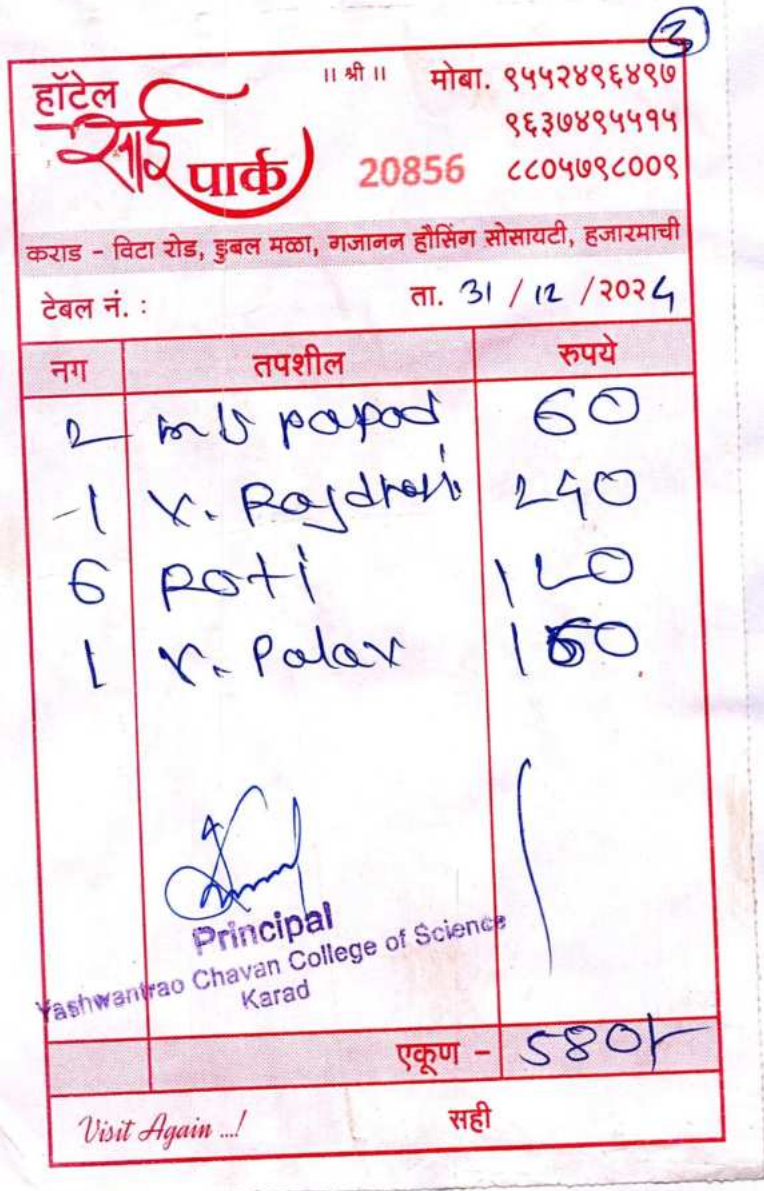 3
॥ श्री ॥
हॉटेल
साई पार्क
मोबा. ९५५२४९६४९७
९६३७४९५५१५
८८०५७९८००९
20856
कराड - विटा रोड, डुबल मळा, गजानन हौसिंग सोसायटी, हजारमाची
टेबल नं. : ता. 31 / 12 / २०२4
नग तपशील रुपये
2 papad 60
1 V. 240
6 Roti 120
1 V. Palav 160
Principal
Yashwantrao Chavan College of Science
Karad
एकूण - 580/-
Visit Again ...! सही